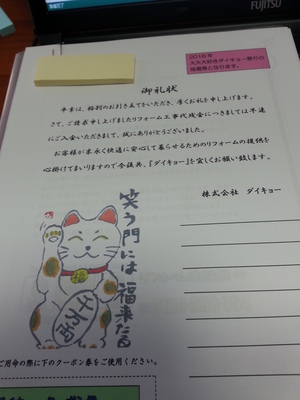 FUJITSU
2016年
大大大好きダイキョー祭りの
抽選券となります。
御礼状
平素は、格別のお引き立てをいただき、厚くお礼を申し上げます。
さて、ご請求申し上げましたリフォーム工事代残金につきましては早速
にご入金いただきまして、誠にありがとうございました。
お客様が末永く快適に安心して暮らせるためのリフォームの提供を
心掛けてまいりますので今後共、『ダイキョー』を宜しくお願い致します。
株式会社 ダイキョー
笑う門には福来たる
千万両
ご用命の際に下のクーポン券をご使用ください。